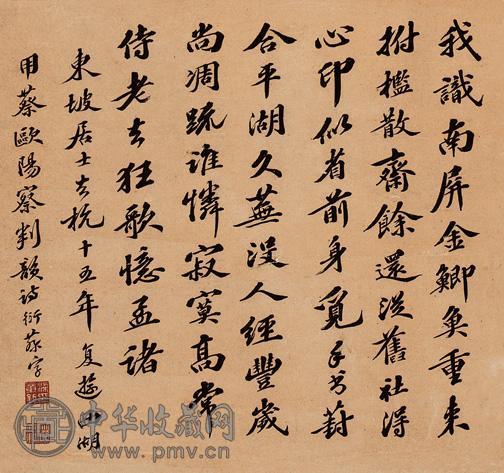 我識南屏金鯽魚重来
拊檻散齋餘還從舊社得
心印似省前身覓手書葑
合平湖久蕪沒人經豐歲
尚凋疏誰憐寂寞高常
侍老去狂歌憶孟諸
東坡居士去杭十五年復遊西湖
用蔡歐陽察判韻詩衍
中华收藏网
www.pmv.cn